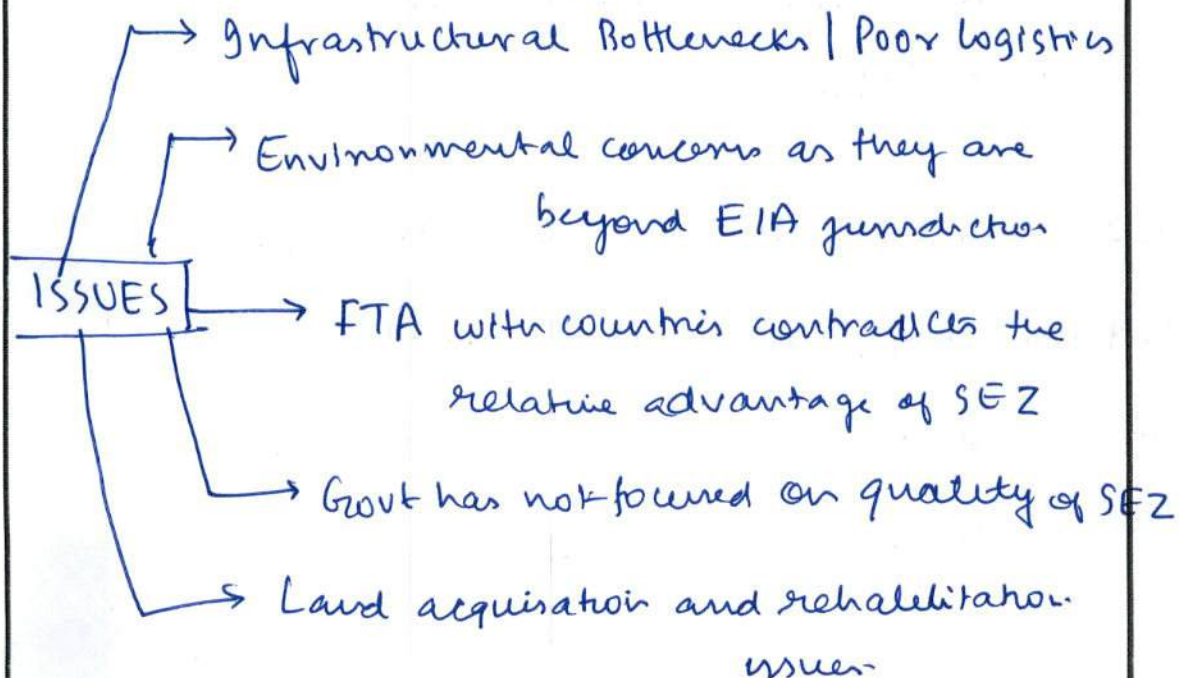 Infrastructural Bottlenecks | Poor logistics
Environmental concerns as they are
beyond EIA jurisdiction
ISSUES
FTA with countries contradicts the
relative advantage of SEZ
Govt has not focused on quality of SEZ
Land acquisation and rehabilitation
issues